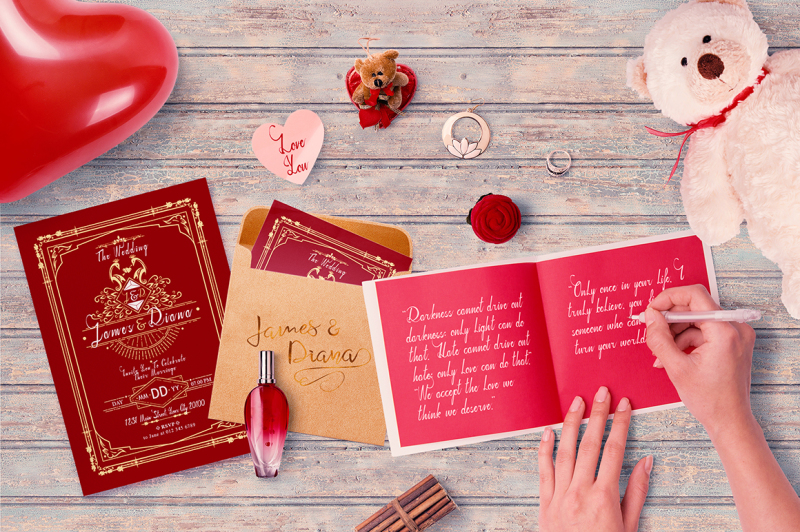 Love
You
The Wedding
J&D
James & Diana
Invite You To Celebrate
Their Marriage
DAY
MM-DD-YY
07:00 PM
1234 Main Street, Your City 20100
RSVP
to Jane at 012 345 6789
The Wedding
James &
Diana
"Darkness cannot drive out
darkness: only light can do
that. Hate cannot drive out
hate; only Love can do that."
"We accept the Love we
think we deserve."
"Only once in your life, I
truly believe, you
someone who can
turn your world